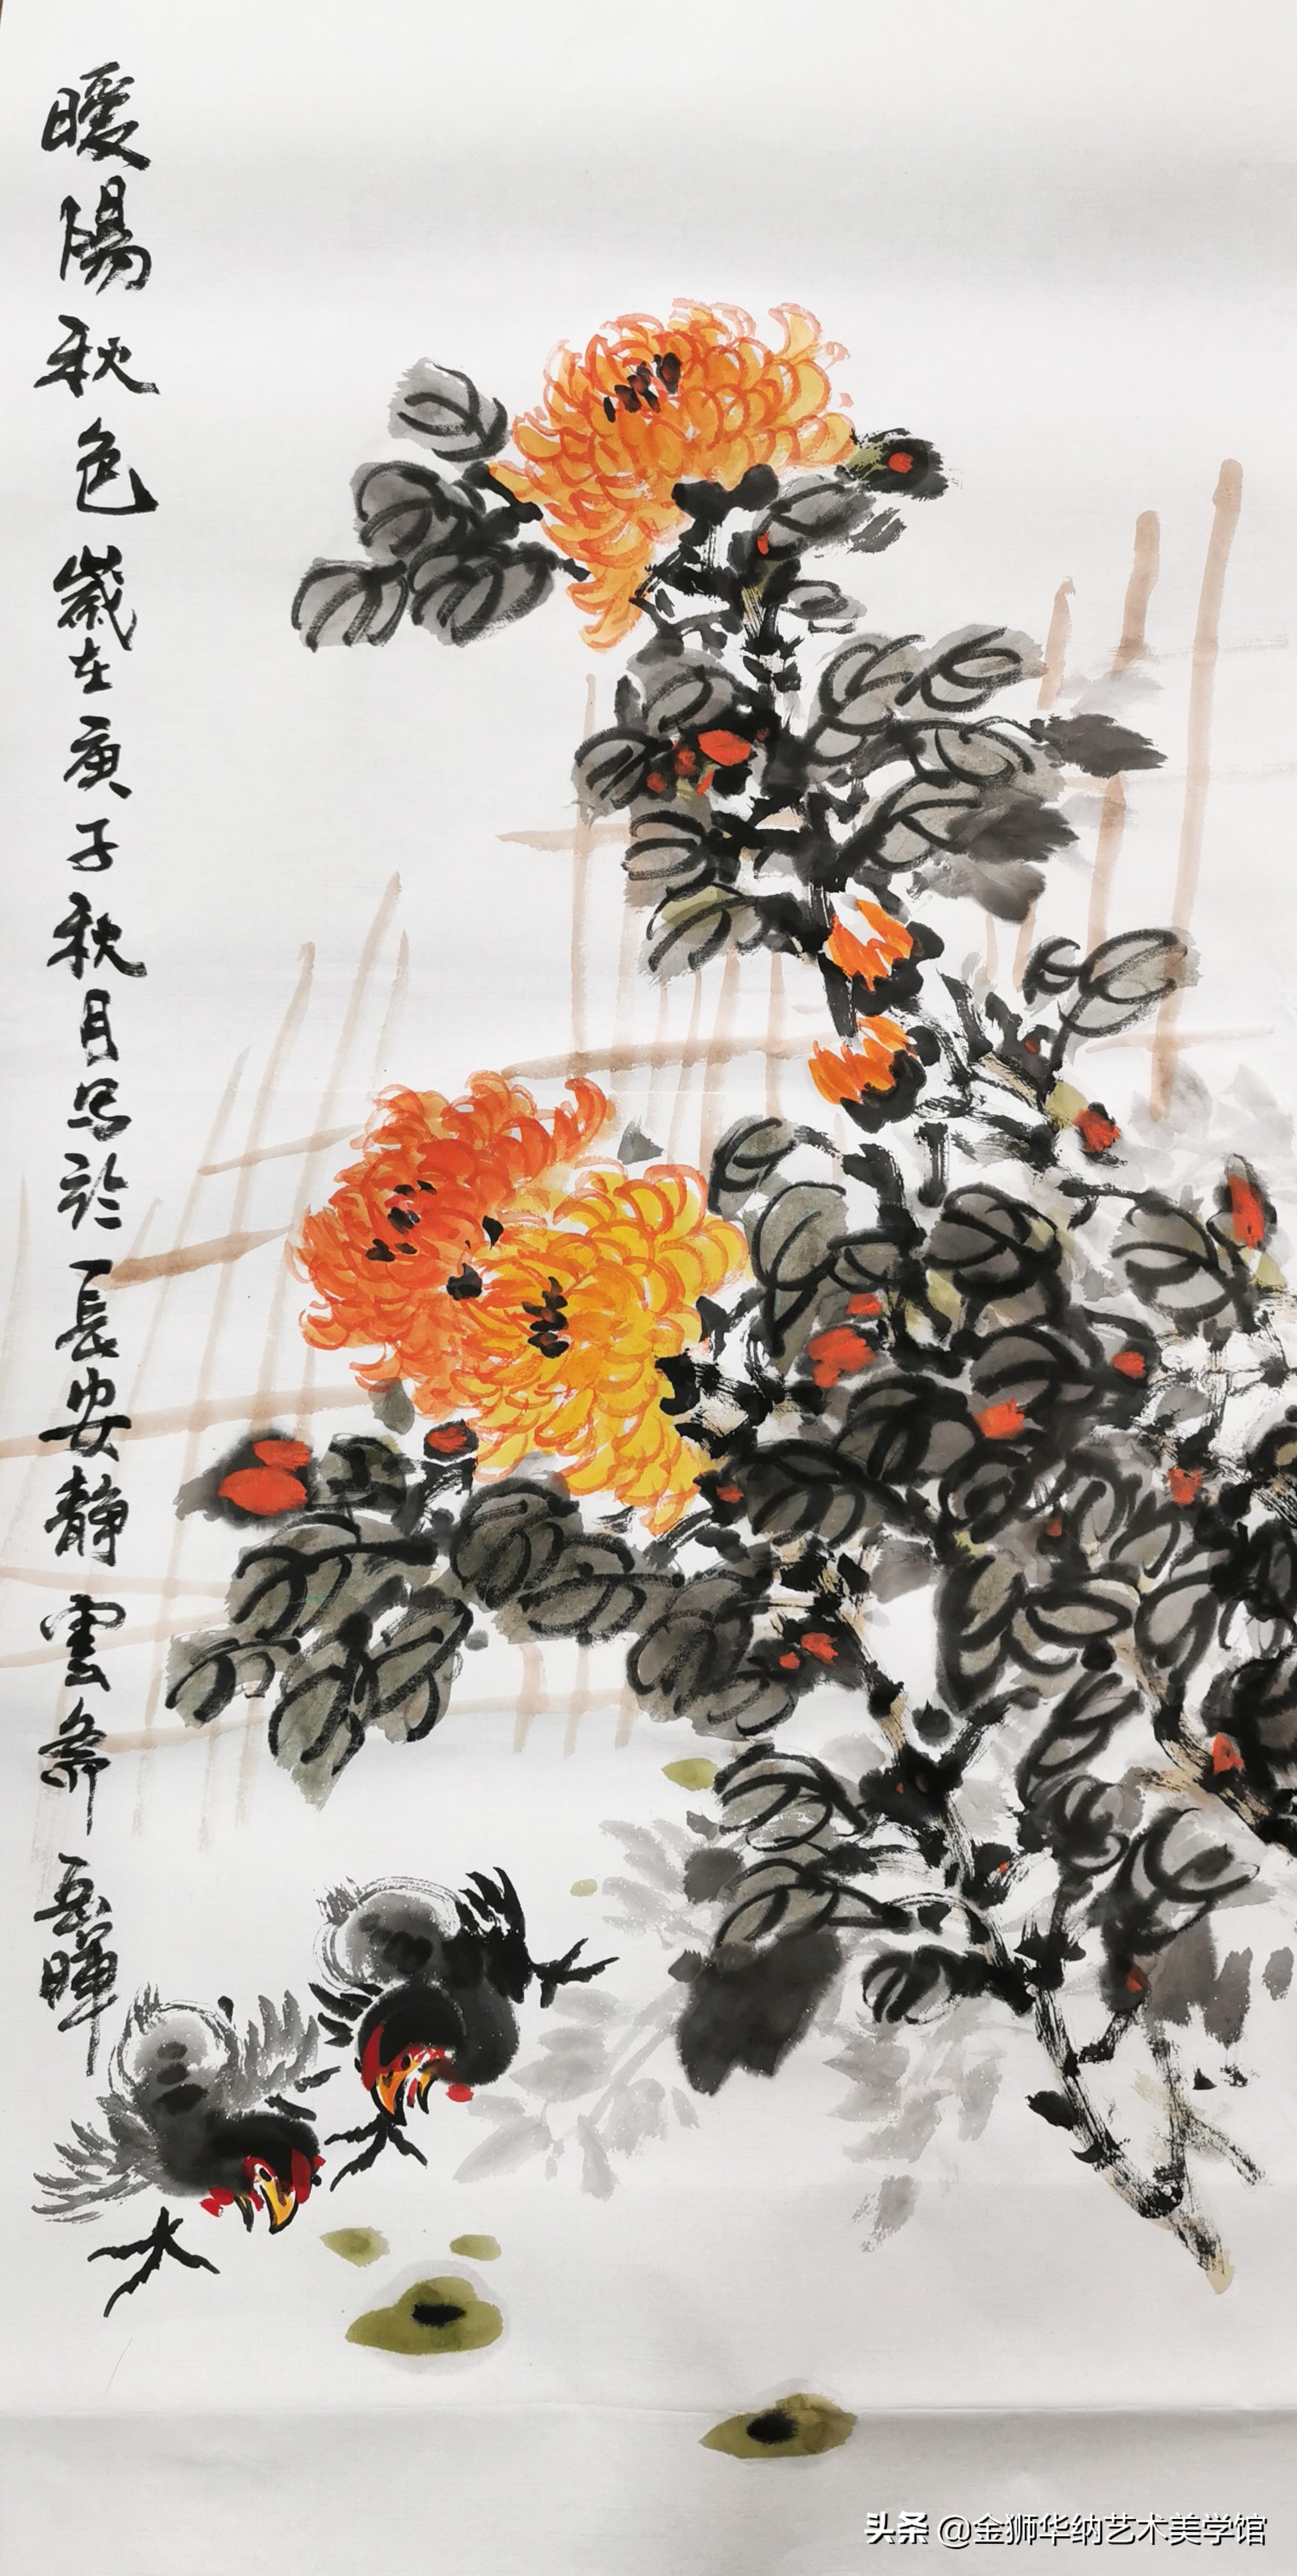 暖陽秋色歲在庚子秋月写於長安静雲斋岳暉
头条 @金狮华纳艺术美学馆